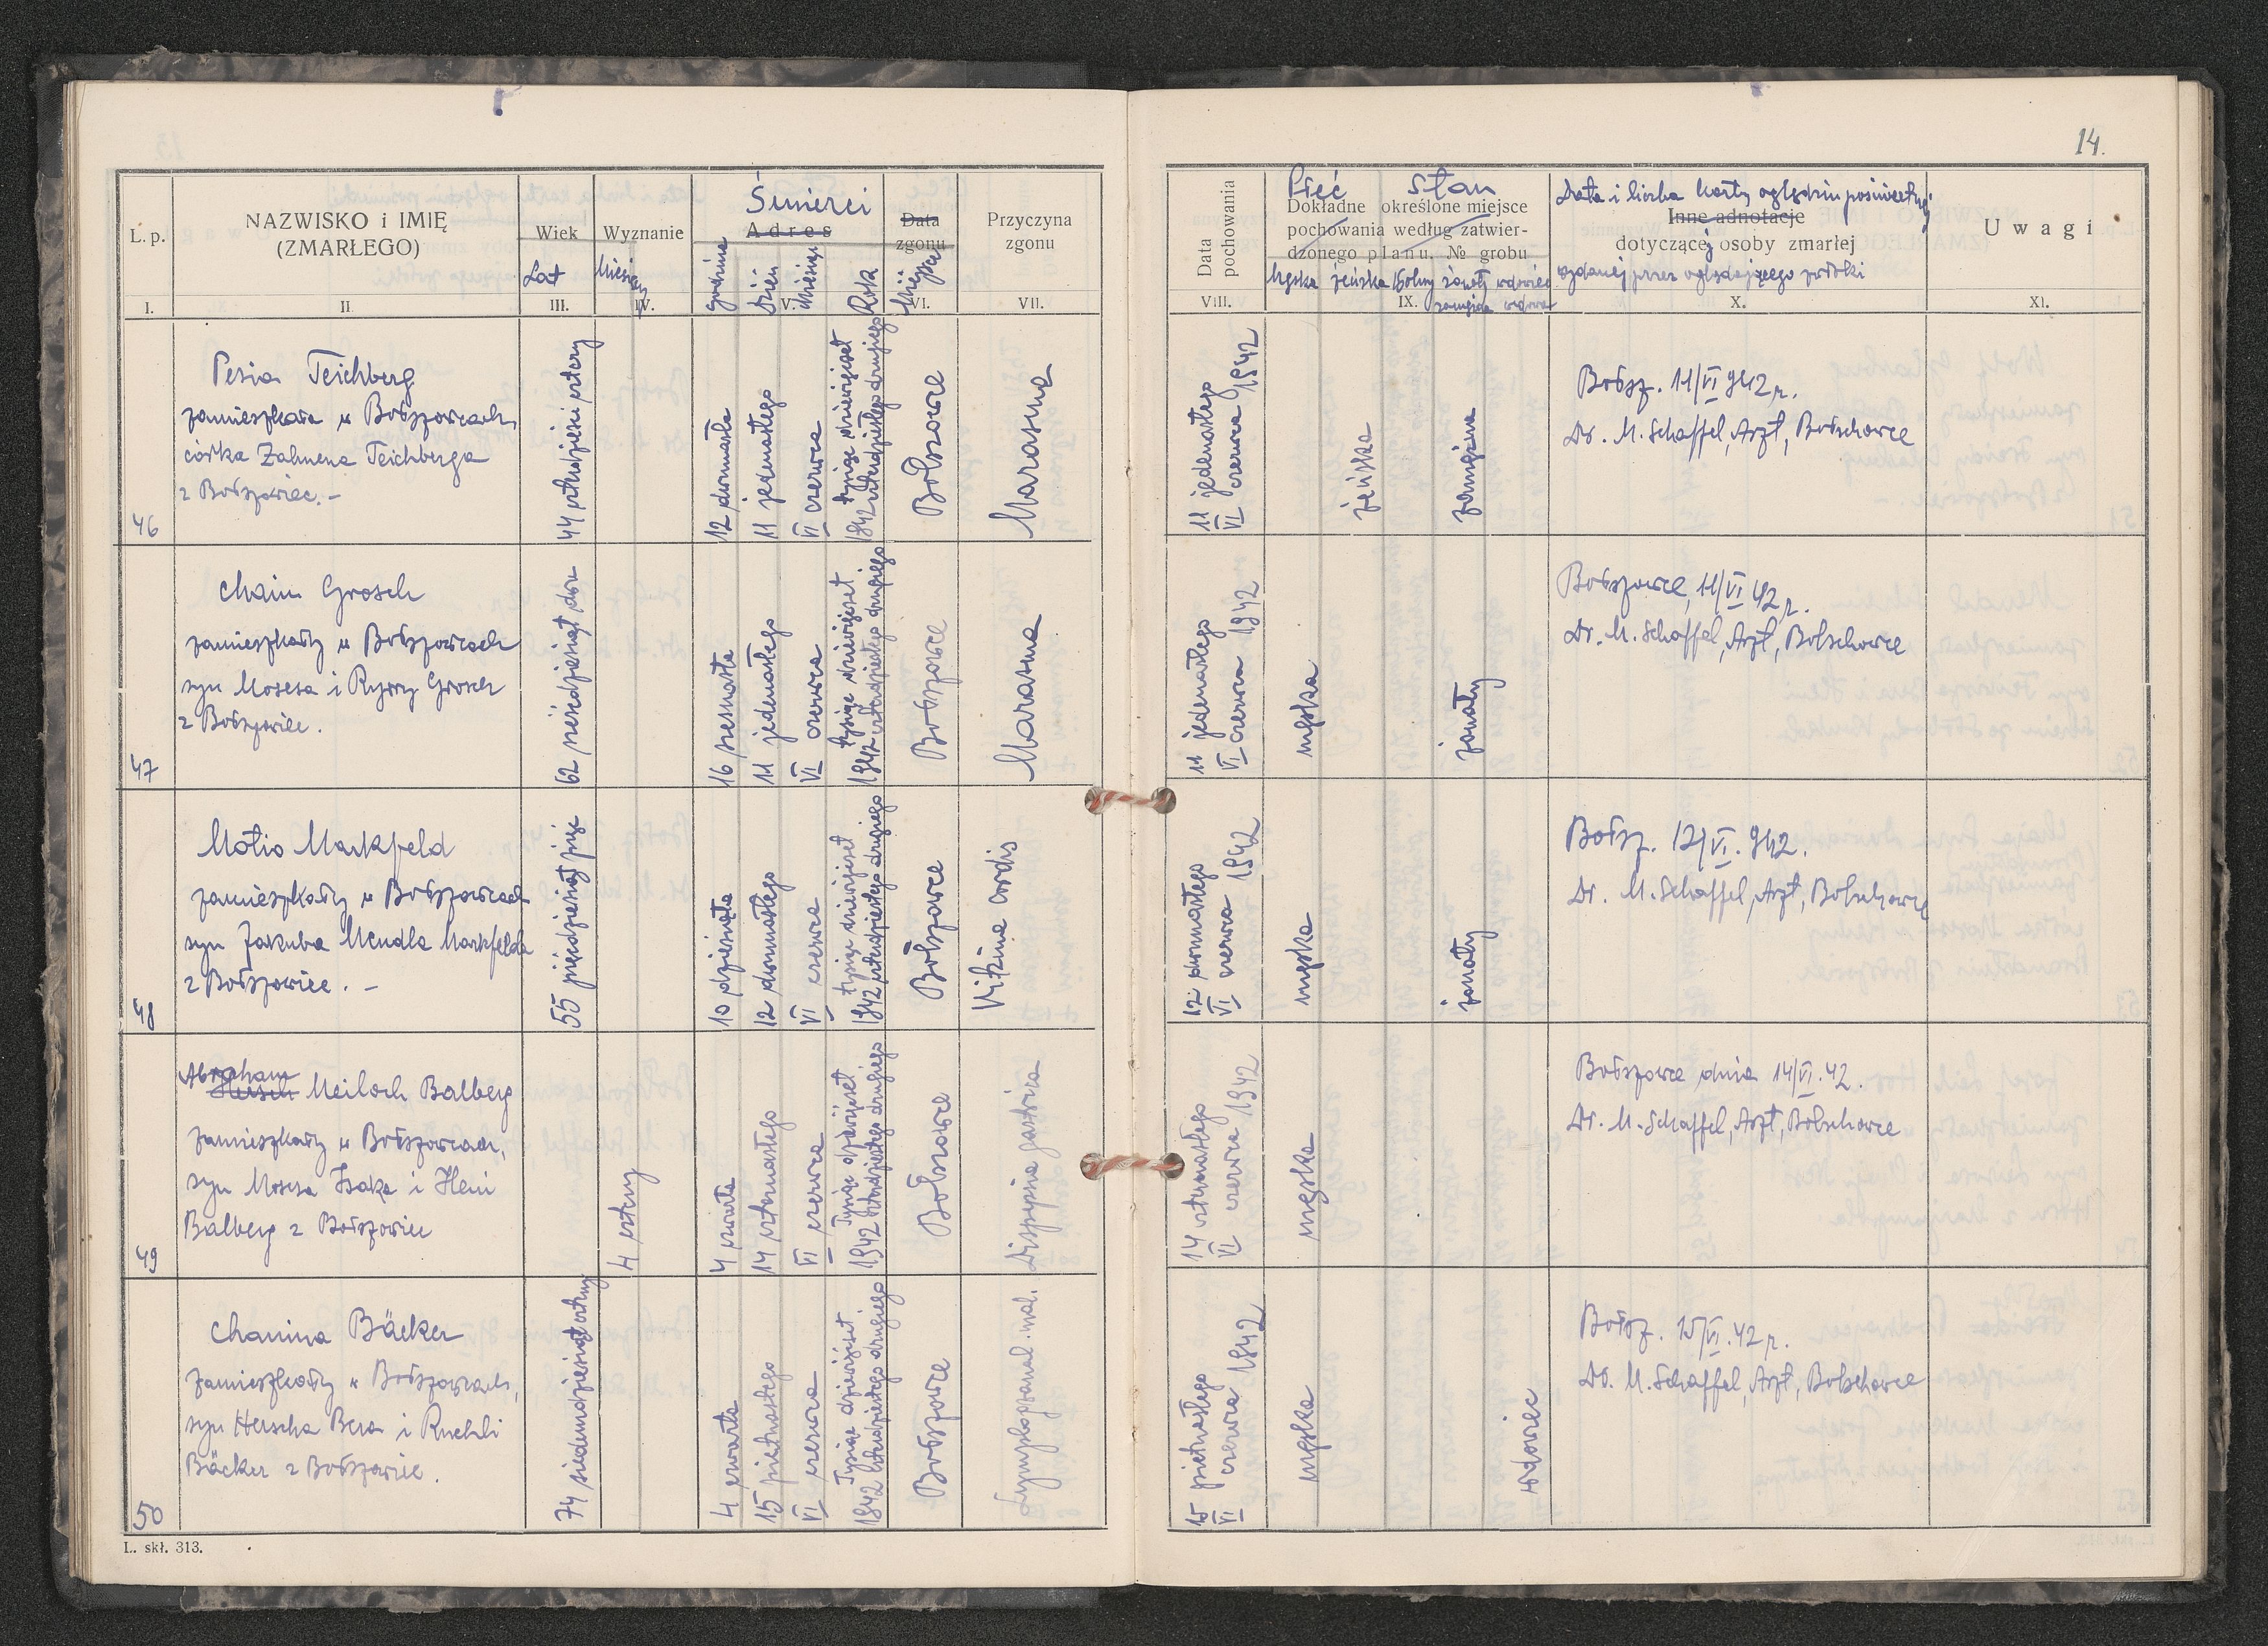 14.
L. p.
NAZWISKO i IMIĘ
(ZMARŁEGO)
Wiek
Lat
Wyznanie
Miesięcy
Śmierci
Adres
godzina
dzień
miesiąc
Rok
Data
zgonu
Miejsce
Przyczyna
zgonu
I.
II
III.
IV.
V.
VI.
VII.
Data
pochowania
Płeć Stan
Dokładne określone miejsce
pochowania według zatwier-
dzonego planu. № grobu
Męska żeńska Wolny żonaty wdowiec
zamężna wdowa
Data i liczba karty oględzin pośmiertnej
Inne adnotacje
dotyczącej osoby zmarłej
wydanej przez oglądającego zwłoki
Uwagi
VIII.
IX.
X.
XI.
46
Pesia Teichberg
zamieszkała w Bołszowcach
córka Zalmena Teichberga
z Bołszowiec. –
44 czterdzieści cztery
12 dwunasta
11 jedenastego
VI czerwca
tysiąc dziewięćset
1942 czterdziestego drugiego
Bołszowce
Marasma
11 jedenastego
VI czerwca 1942
żeńska
zamężna
Bołsz. 11/VI 942 r.
Dr. M. Schaffel, Arzt, Bolschowce
47
Chaim Grosch
zamieszkały w Bołszowcach
syn Mosesa i Rywy Grosch
z Bołszowiec.
62 sześćdziesiąt dwa
16 szesnasta
11 jedenastego
VI czerwca
tysiąc dziewięćset
1942 czterdziestego drugiego
Bołszowce
Marasma
11 jedenastego
VI czerwca 1942
męska
żonaty
Bołszowce, 11/VI 42 r.
Dr. M. Schaffel, Arzt, Bolschowce
48
Motio Markfeld
zamieszkały w Bołszowcach
syn Jakuba Mendla Markfelda
z Bołszowiec. –
55 pięćdziesiąt pięć
10 dziesiąta
12 dwunastego
VI czerwca
tysiąc dziewięćset
1942 czterdziestego drugiego
Bołszowce
Vitium cordis
12 dwunastego
VI czerwca 1942
męska
żonaty
Bołsz. 12/VI. 942.
Dr. M. Schaffel, Arzt, Bolschowce
49
Abraham
Hersch Meiloch Balberg
zamieszkały w Bołszowcach,
syn Mosesa Izaka i Heni
Balberg z Bołszowiec
4 cztery
4 czwarta
14 czternastego
VI czerwca
Tysiąc dziewięćset
1942 czterdziestego drugiego
Bołszowce
Dispepsia gastrica
14 czternastego
VI czerwca 1942
męska
Bołszowce dnia 14/VI.42.
Dr. M. Schaffel, Arzt, Bolschowce
50
Chanina Bäcker
zamieszkały w Bołszowcach,
syn Herscha Bera i Ruchli
Bäcker z Bołszowiec.
74 siedemdziesiąt cztery
4 czwarta
15 piętnastego
VI czerwca
Tysiąc dziewięćset
1942 czterdziestego drugiego
Bołszowce
mal.
15 piętnastego
VI czerwca 1942
męska
wdowiec
Bołsz. 15/VI.42 r.
Dr. M. Schaffel, Arzt, Bolschowce
L. skł. 313.